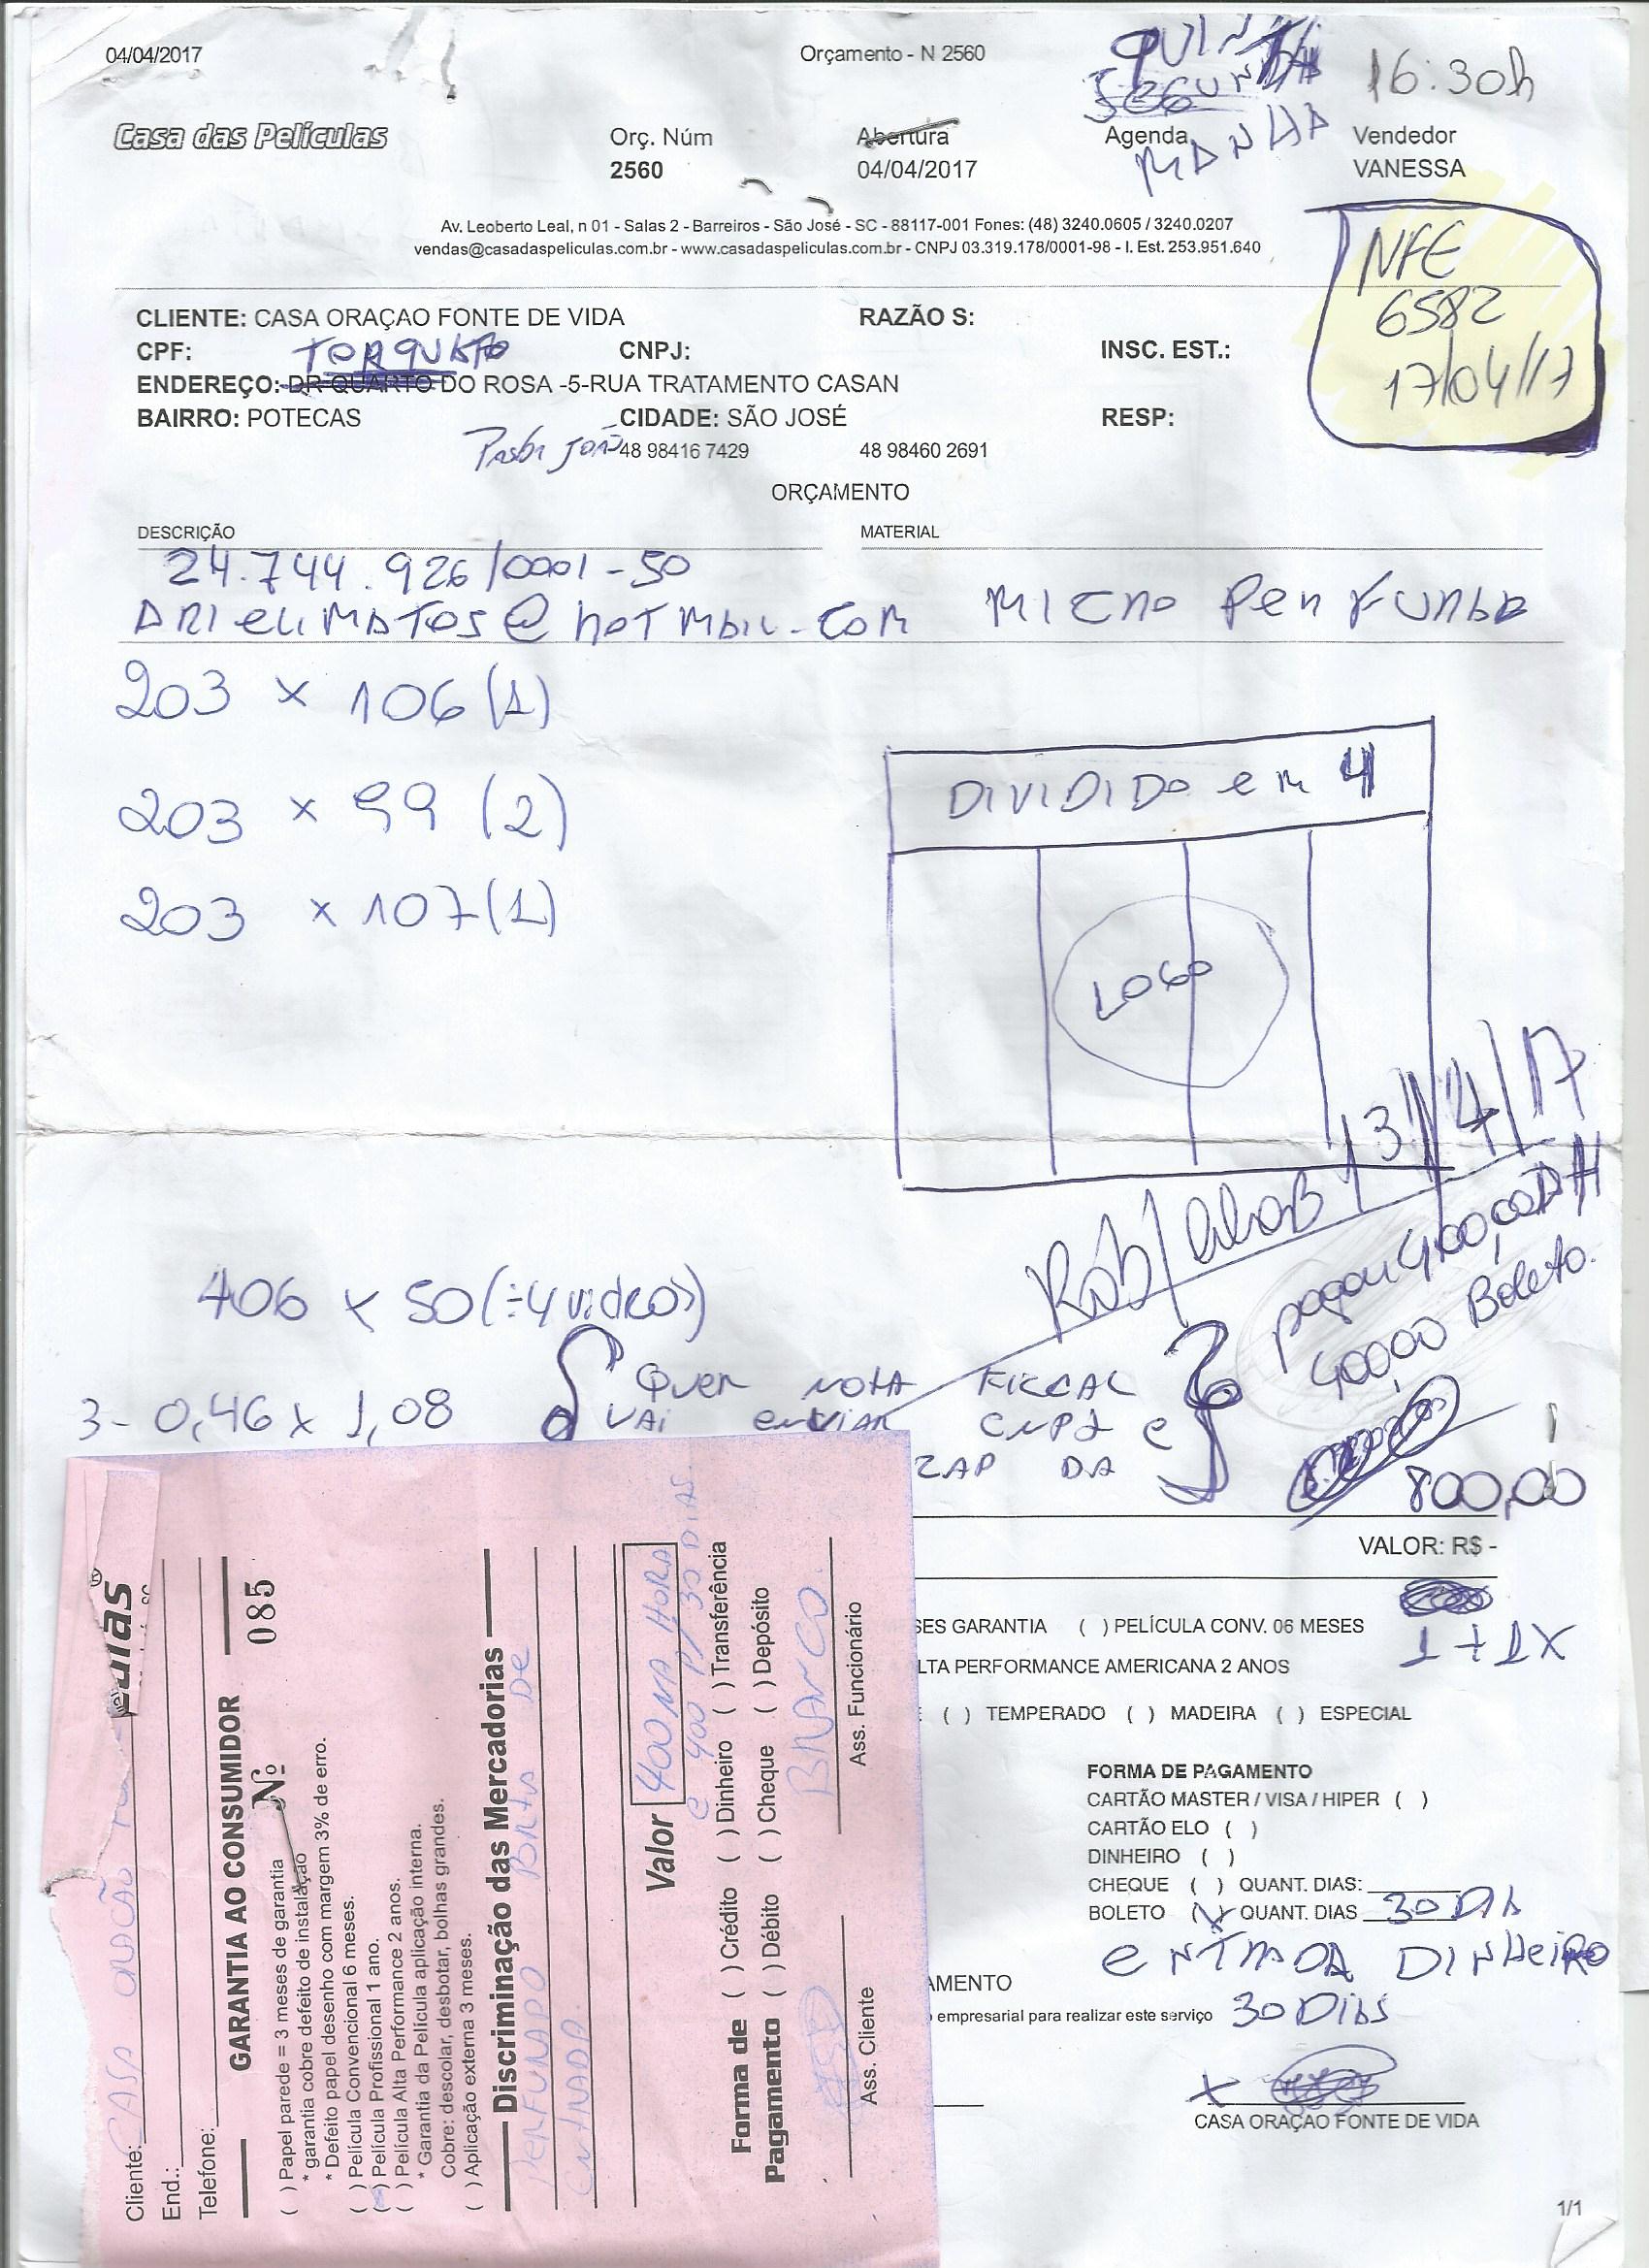 04/04/2017
Orçamento - N 2560
QUINTA
SEGUNDA
MANHÃ
16:30h
Casa das Películas
Orç. Núm
2560
Abertura
04/04/2017
Agenda
Vendedor
VANESSA
Av. Leoberto Leal, n 01 - Salas 2 - Barreiros - São José - SC - 88117-001 Fones: (48) 3240.0605 / 3240.0207
vendas@casadaspeliculas.com.br - www.casadaspeliculas.com.br - CNPJ 03.319.178/0001-98 - I. Est. 253.951.640
NFE
6582
17/04/17
CLIENTE: CASA ORAÇAO FONTE DE VIDA
RAZÃO S:
CPF:
CNPJ:
INSC. EST.:
ENDEREÇO: DR QUARTO DO ROSA -5-RUA TRATAMENTO CASAN
BAIRRO: POTECAS
CIDADE: SÃO JOSÉ
RESP:
JOÃO 48 98416 7429
48 98460 2691
ORÇAMENTO
DESCRIÇÃO
MATERIAL
24.744.926/0001-50
ARIELIMATOS@HOTMAIL.COM
MICRO PERFURADO
203 x 106 (1)
203 x 99 (2)
203 x 107 (1)
DIVIDIDO em 4
LOGO
13/4/17
pagou 400,00 DH
400,00 Boleto.
406 x 50 (÷4 vidros)
3- 0,46 x 1,08
QUER NOTA FISCAL
VAI ENVIAR CNPJ e
ZAP DA
800,00
VALOR: R$ -
1+1X
SES GARANTIA ( ) PELÍCULA CONV. 06 MESES
LTA PERFORMANCE AMERICANA 2 ANOS
( ) TEMPERADO ( ) MADEIRA ( ) ESPECIAL
FORMA DE PAGAMENTO
CARTÃO MASTER / VISA / HIPER ( )
CARTÃO ELO ( )
DINHEIRO ( )
CHEQUE ( ) QUANT. DIAS:
BOLETO ( ) QUANT. DIAS 30 DIA
ENTRADA DINHEIRO
AMENTO
empresarial para realizar este serviço 30 DIAS
x
CASA ORAÇAO FONTE DE VIDA
1/1
Cliente: CASA ORAÇÃO
End.:
Telefone:
GARANTIA AO CONSUMIDOR
Nº 085
( ) Papel parede = 3 meses de garantia
* garantia cobre defeito de instalação
* Defeito papel desenho com margem 3% de erro.
( ) Película Convencional 6 meses.
( ) Película Profissional 1 ano.
( ) Película Alta Performance 2 anos.
* Garantia da Película aplicação interna.
Cobre: descolar, desbotar, bolhas grandes.
( ) Aplicação externa 3 meses.
Discriminação das Mercadorias
PERFURADO PORTA DE
ENTRADA.
Valor 400 NA HORA
e 400 P/ 30 DIAS.
Forma de Pagamento
( ) Crédito ( ) Dinheiro ( ) Transferência
( ) Débito ( ) Cheque ( ) Depósito
BRANCO.
Ass. Cliente
Ass. Funcionário